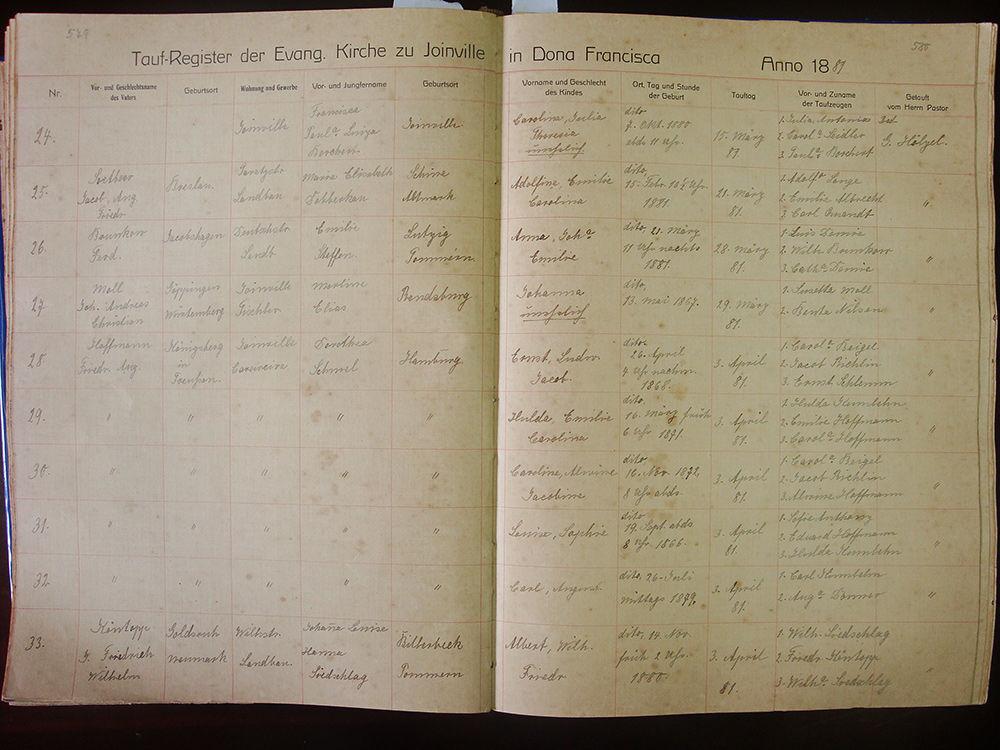 579
580
Tauf-Register der Evang. Kirche zu Joinville in Dona Francisca Anno 1881
Nr.
Vor- und Geschlechtsname des Vaters
Geburtsort
Wohnung und Gewerbe
Vor- und Jungfername
Geburtsort
Vorname und Geschlecht des Kindes
Ort, Tag und Stunde der Geburt
Tauftag
Vor- und Zuname der Taufzeugen
Getauft vom Herrn Pastor
24.
Joinville
Francisca
Paula Luiza
Borchert
Joinville
Carolina, Julia
Theresia
unehelich
dito
7. Okt. 1880
abds 11 Uhr.
15. März
81.
1. Julia Antonia
2. Carola Seidler
3. Paula Borchert
G. Hölzel.
25.
Jacob, Aug.
Friedr.
Breslau.
Landbau
Maria Elisabeth
Altmark
Adolfine, Emilie
Carolina
dito
15. Febr. 10½ Uhr.
1881
21. März
81.
1. Adolf Lange
2. Emilie Albrecht
3. Carl Quandt
"
26.
Baumkow
Ferd.
Jacobshagen
Landb.
Emilie
Steffen.
Pommern.
Anna, Joha
Emilie
dito, 21. März
11 Uhr nachts
1881.
28. März
81.
2. Wilh. Baumkow
"
27.
Moll
Joh. Andreas
Christian
Göppingen
Würtemberg
Joinville
Tischler
Martine
Elias
Rendsburg
Johanna
unehelich
dito,
13. Mai 1867.
29. März
81.
1. Lisetta Moll
2. Benta Nilsen
"
28.
Hoffmann
Friedr. Aug.
Königsberg
in
Preußen.
Joinville
Dorothea
Hamburg
Ernst, Ludw.
Jacob.
dito,
26. April
4 Uhr nachm.
1868.
3. April
81.
1. Carola Beigel
2. Jacob Richlin
3. Ernst Schlemm
"
29.
" " " " "
Hulda Emilie
Carolina
dito,
16. März früh
6 Uhr 1871.
3. April
81.
1. Hulda Kumlehn
2. Emilie Hoffmann
3. Carola Hoffmann
"
30.
" " " " "
Caroline, Alwine
Jacobine
dito
16. Nov. 1872,
8 Uhr abds.
3. April
81.
1. Carola Beigel
2. Jacob Richlin
3. Alwine Hoffmann
"
31.
" " " " "
Louise, Sophie
dito
19. Sept. abds
8 Uhr. 1866.
3. April
81.
1. Sofie Anthony
2. Eduard Hoffmann
3. Hulda Kumlehn
"
32
" " " " "
Carl, August.
dito, 26. Juli
mittags 1879,
3. April
81.
1. Carl Kumlehn
2. Auga Donner
"
33.
Köntopp
J. Friedrich
Wilhelm
Neumark
Wilhstr.
Landbau.
Johana Louise
Hanna
Loedschlag
Billerbeck
Pommern
Albert, Wilh.
Friedr
dito, 14. Nov.
früh 2 Uhr.
1880.
3. April
81.
1. Wilh. Loedschlag
2. Friedr Köntopp
3. Wilha Loedschlag
"